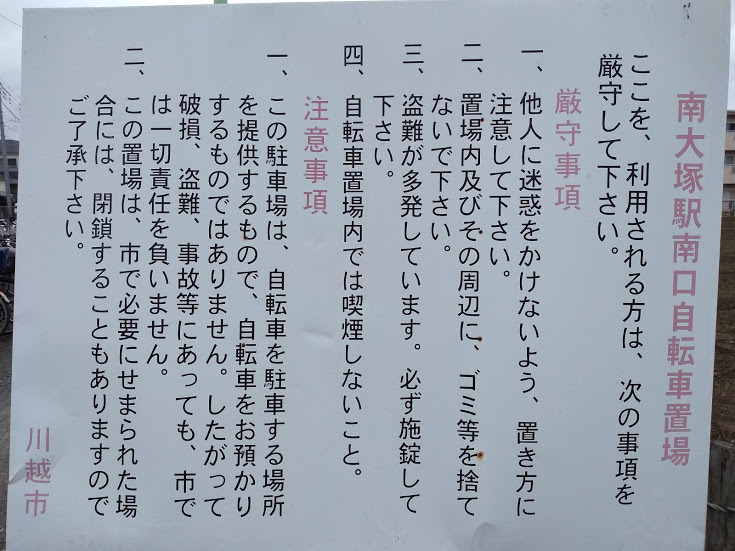 南大塚駅南口自転車置場
ここを、利用される方は、次の事項を
厳守して下さい。
厳守事項
一、他人に迷惑をかけないよう、置き方に
注意して下さい。
二、置場内及びその周辺に、ゴミ等を捨て
ないで下さい。
三、盗難が多発しています。必ず施錠して
下さい。
四、自転車置場内では喫煙しないこと。
注意事項
一、この駐車場は、自転車を駐車する場所
を提供するもので、自転車をお預かり
するものではありません。したがって
破損、盗難、事故等にあっても、市で
は一切責任を負いません。
二、この置場は、市で必要にせまられた場
合には、閉鎖することもありますので
ご了承下さい。
川越市